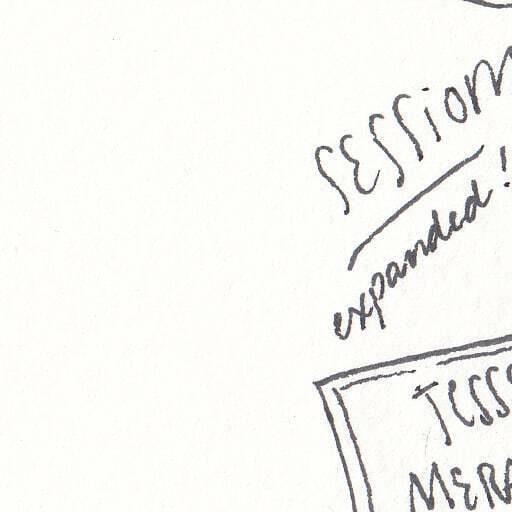 SESSION
expanded!
JESS
MERA